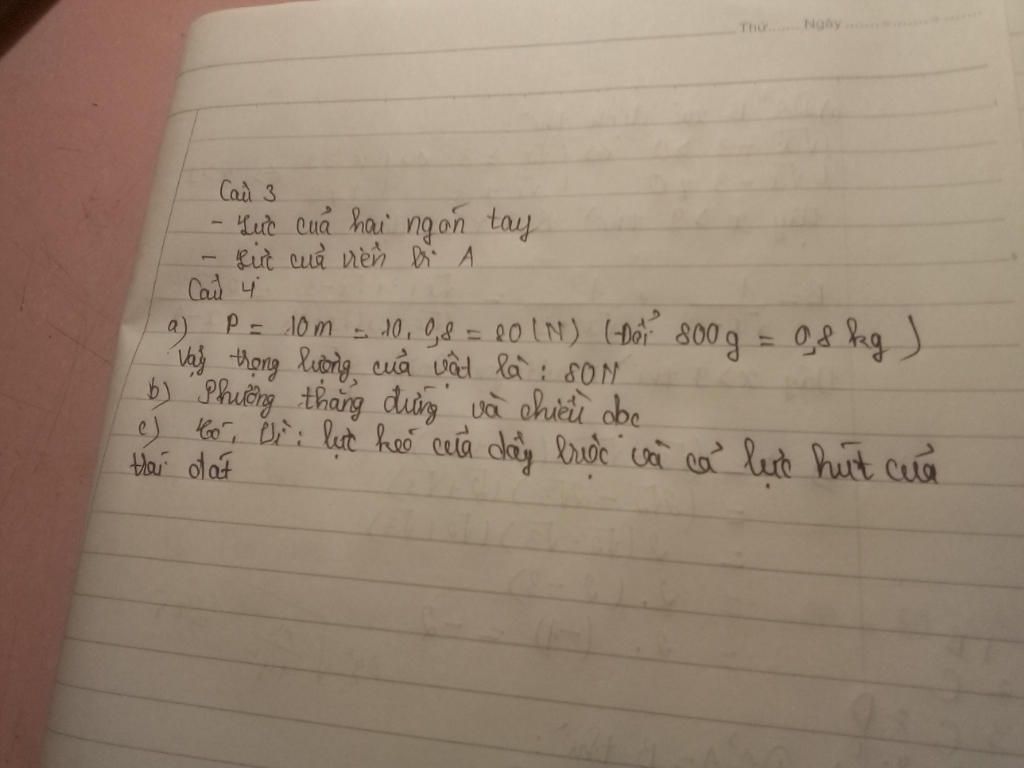 Thứ....... Ngày ..................
Câu 3
- Lực của hai ngón tay
- Lực của viên bi A
Câu 4
a) P = 10m = 10. 0,8 = 80 (N) (Đổi 800g = 0,8 kg)
Vậy trọng lượng của vật là : 80N
b) Phương thẳng đứng và chiều dọc
c) Có. Vì : lực kéo của dây trước và cả lực hút của
trái đất